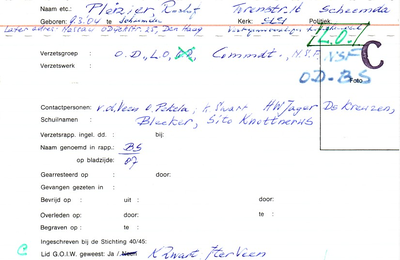 Naam etc.: Pleizier Roelof Torenstr. 16 Scheemda
Geboren: 9.3.04 te Scheemda Kerk: Politiek
Later adres: 25, Den Haag
L.O.
Verzetsgroep : O.D., L.O., Commdt., N.S.F. NSF
C
Verzetswerk :
OD-BS
Foto
Contactpersonen: v.d. Veen O. Pekela, K. Swart HW Jager De Kreuzen,
Schuilnaam : Bleeker, Sito Knotnerus
Verzetsrapp. ingel. dd. : bij:
Naam genoemd in rapp.: BS
op bladzijde: 87
Gearresteerd op : door:
Gevangen gezeten in :
Bevrijd op : uit : door:
Overleden op: door: te :
Begraven op : te :
Ingeschreven bij de Stichting 40/45:
C Lid G.O.I.W. geweest: Ja / Neen K Zwart Herveen